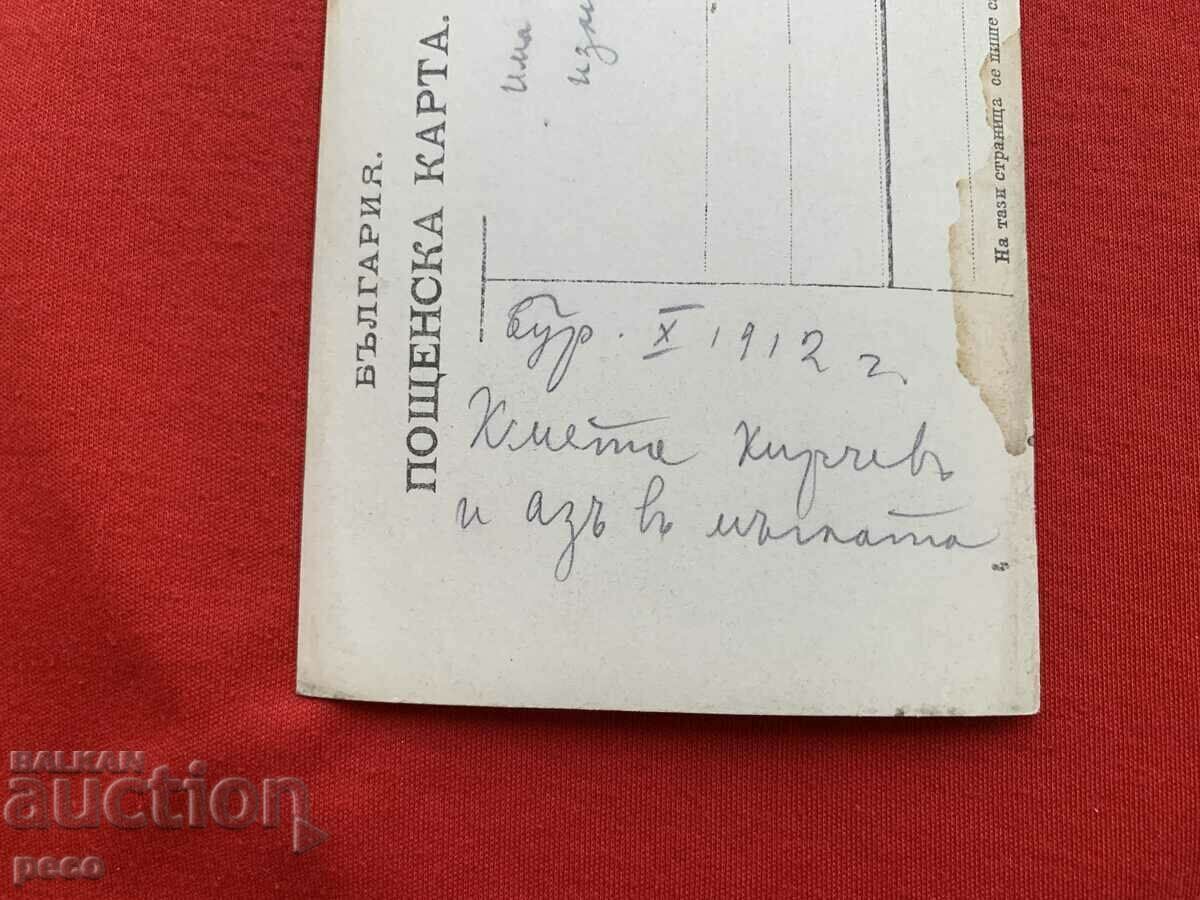 БЪЛГАРИЯ.
ПОЩЕНСКА КАРТА.
има
изм
На тази страница се пише са
Бур. X 1912 г.
Кмета Кирчевъ
и азъ въ мъглата
BALKAN
auction
peco